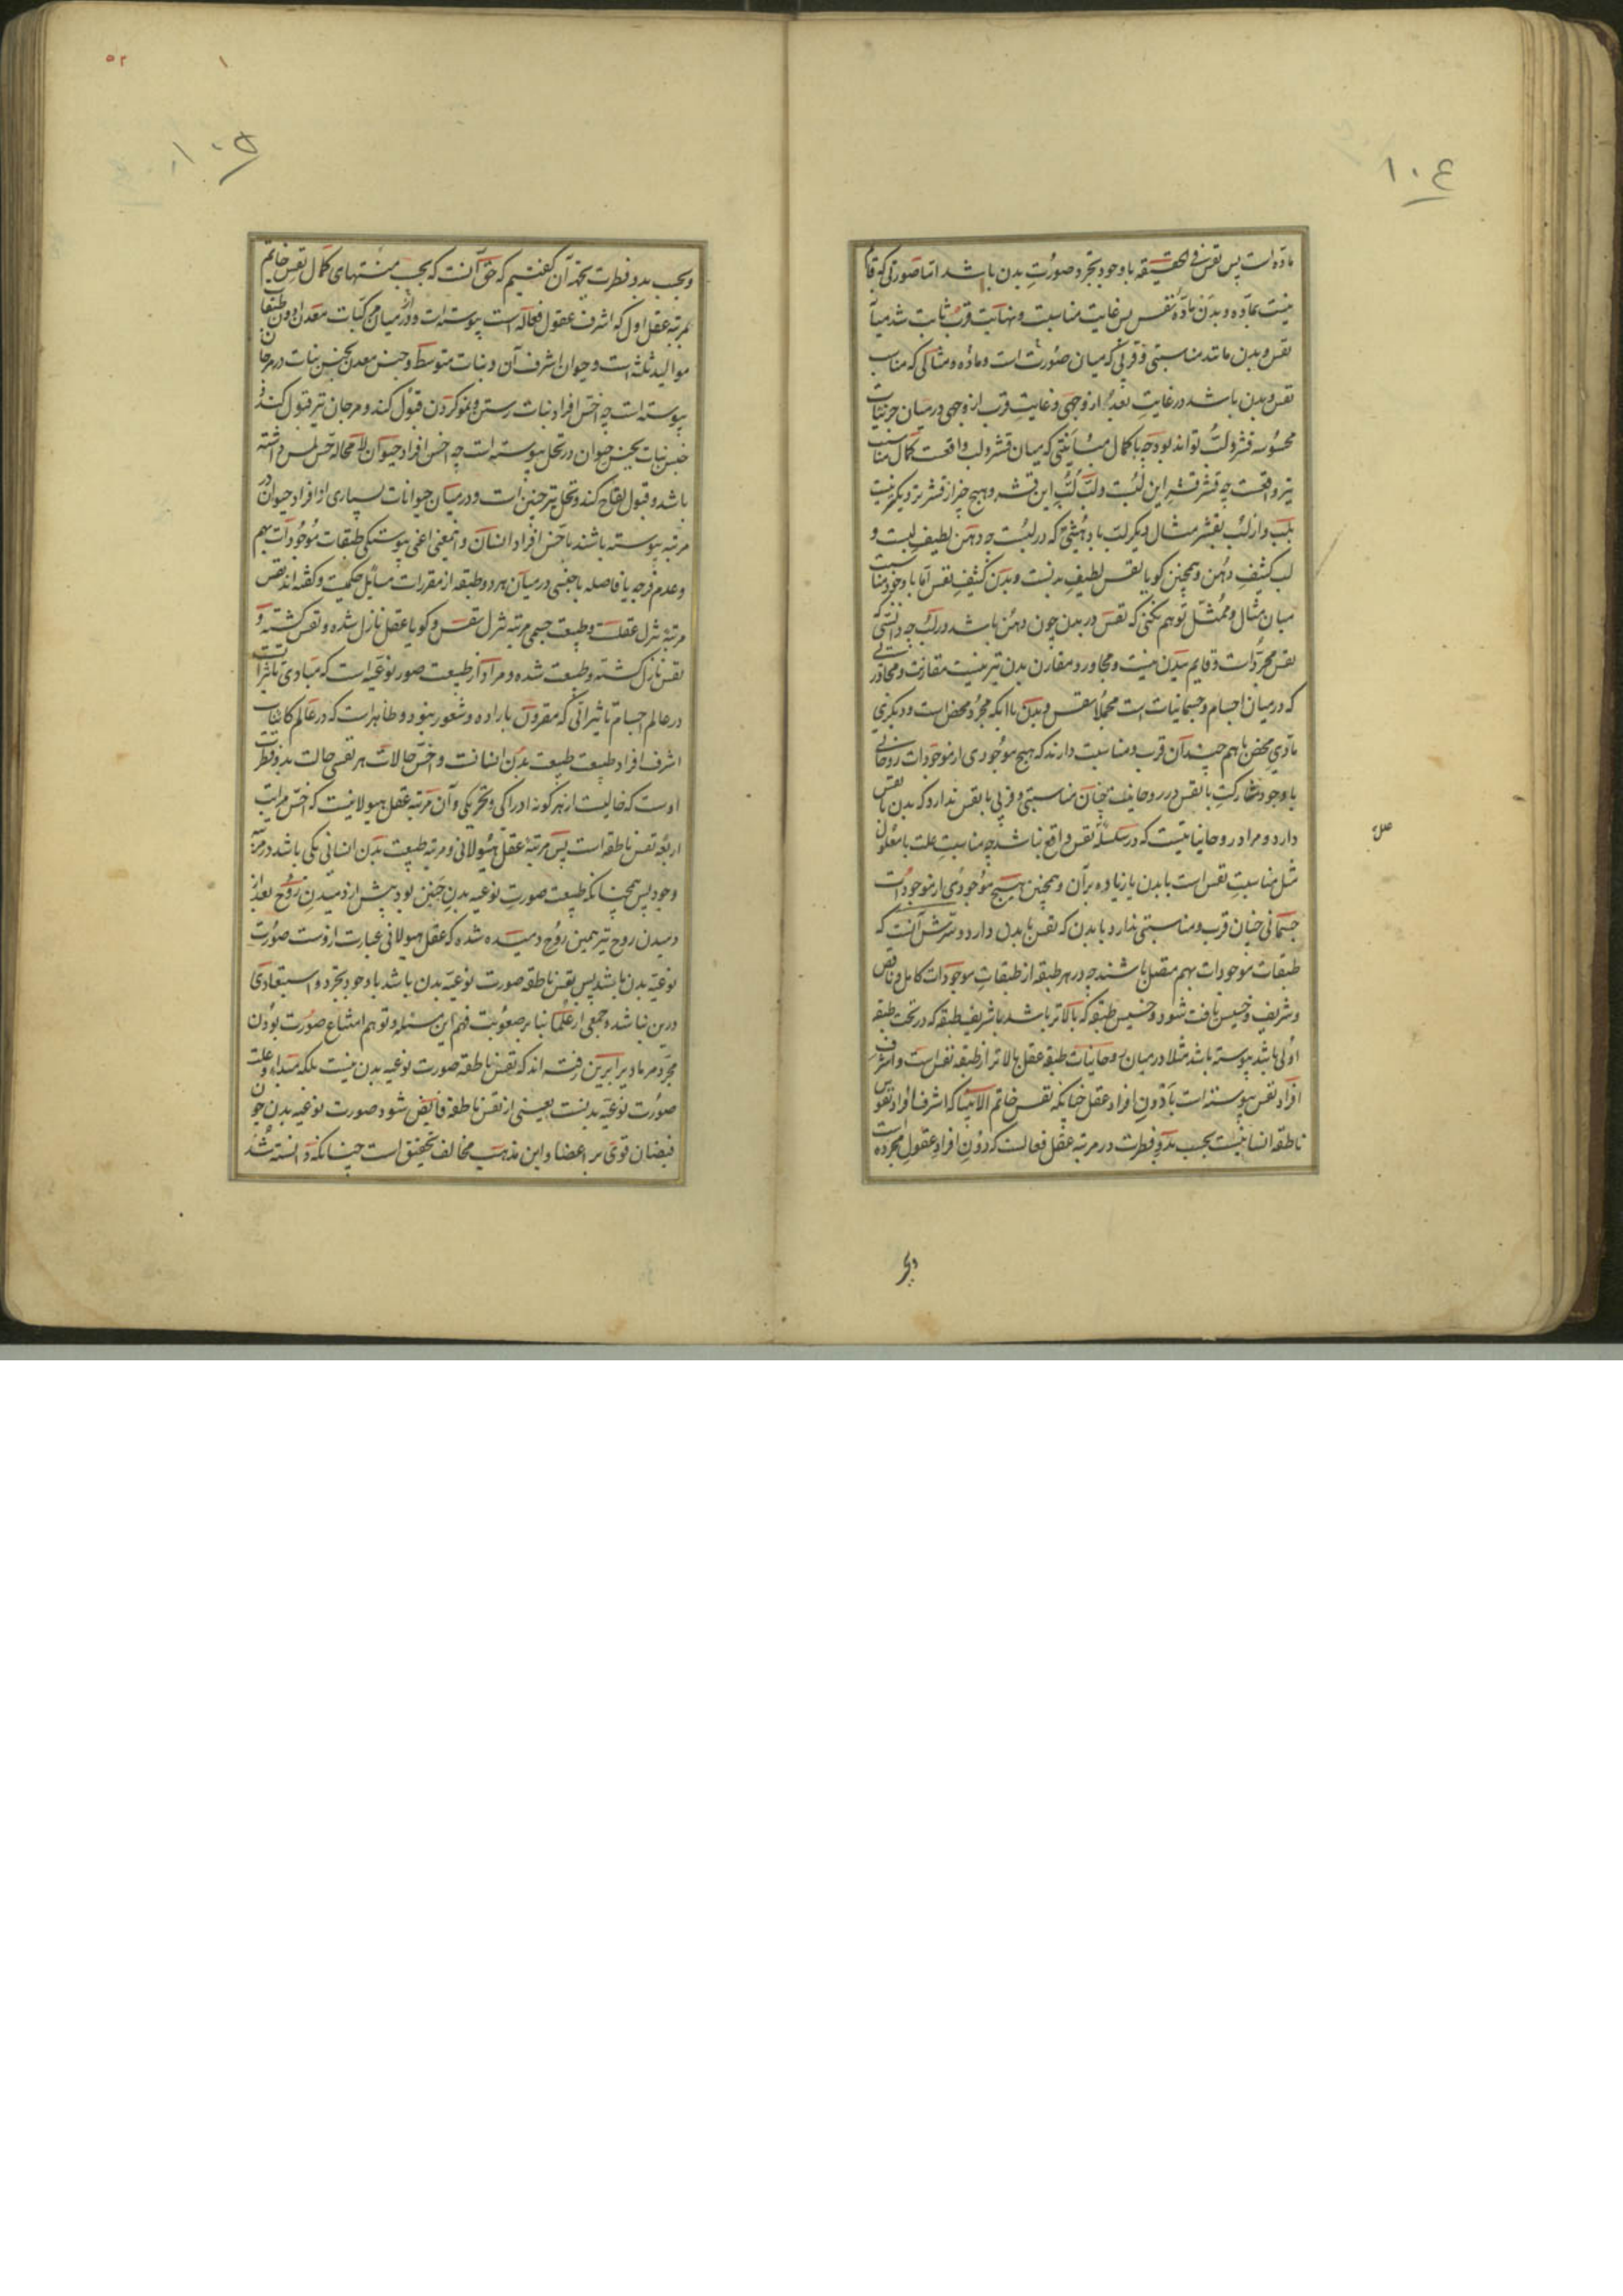 ۱۰۴
ماده است پس نفس فی الحقیقه با وجود تجرد صورت بدن باشد اما صورتی که قائم
نیست بماده و بدن ماده نفس پس غایت مناسبت و نهایت قرب ثابت شد میان
نفس و بدن مانند مناسبتی و قربی که میان صورت است و ماده و مثالی که مناسب
نفس و بدن باشد در غایت بعد از وجهی و غایت قرب از وجهی در میان جزئیات
محسوسه قشر و لب تواند بود چه با کمال مباینتی که میان قشر و لب واقعست کمال مناسبت
نیز واقعست چه قشر قشر این لبست و لب لب این قشر و هیچ چیز از قشر نزدیکتر نیست
بلب و از لب بقشر مثال دیگر لب با دهنیتی که در لبست چه دهن لطیف لبست و
لب کثیف دهن و همچنین گویا نفس لطیف بدنست و بدن کثیف نفس اما با وجود مناسبت
میان مثال و ممثل توهم نکنی که نفس در بدن چون دهن باشد در لب چه دانستی که
نفس مجرد است و قایم ببدن نیست و مجاور و مقارن بدن نیز نیست مقارنت و مجاورتی
که در میان اجسام و جسمانیات است محملا نفس و بدن با آنکه مجرد محض است و دیگری
مادی محض با هم چندان قرب و مناسبت دارند که هیچ موجودی از موجودات روحانی
با وجود مشارکت با نفس در روحانیت چنان مناسبتی و قربی با نفس ندارد که بدن با نفس
دارد و مراد روحانیاتیست که در سلسله نفس واقع نباشد چه مناسبت علت با معلول
مثل مناسبت نفس است با بدن یا زیاده بر آن و همچنین هیچ موجودی از موجودات
جسمانی چنان قرب و مناسبتی ندارد با بدن که نفس با بدن دارد و سرش آنست که
طبقات موجودات بهم متصل باشند چه در هر طبقه از طبقات موجودات کامل و ناقص
و شریف و خسیس یافت شود و خسیس طبقه که بالاتر باشد با شریف طبقه که در تحت طبقه
اولی باشد پیوسته باشد مثلا در میان روحانیات طبقه عقل بالاتر از طبقه نفس است و اشرف
افراد نفس پیوسته است با دون افراد عقل چنانکه نفس خاتم الانبیا که اشرف افراد نفوس
ناطقه انسانیست بحسب بدو فطرت در مرتبه عقل فعالست که دون افراد عقول مجرده است
۵۲
۱
۱۰۵
و بحسب بدو فطرت بجهة آن گفتیم که حق آنست که بحسب منتهای کمال نفس خاتم
بمرتبه عقل اول که اشرف عقول فعاله است پیوسته است و در میان مرکبات معدن دون طبقات
موالید ثلثه است و حیوان اشرف آن و نبات متوسط و جنس معدن بجنس نبات در مرجان
پیوسته است چه اخس افراد نبات رستن و نمو کردن قبول کند و مرجان نیز قبول کند و
جنس نبات بجنس حیوان در نخل پیوسته است چه اخس افراد حیوان لا محاله حس لمس داشته
باشد و قبول لقاح کند و نخل نیز چنین است و در میان حیوانات بسیاری از افراد حیوان در
مرتبه پیوسته باشند باخس افراد انسان و اینمعنی اعنی پیوستگی طبقات موجودات بهم
و عدم فرجه یا فاصله باجنبی در میان هر دو طبقه از مقررات مسایل حکمیت و گفته اند نفس
مرتبه تنزل عقلست و طبیعت جسمی مرتبه تنزل نفس و گویا عقل نازل شده و نفس گشته و
نفس نازل گشته و طبیعت شده و مراد از طبیعت صور نوعیه است که مبادی تاثیرات
در عالم اجسام تاثیراتی که مقرون باراده و شعور نبود و ظاهر است که در عالم کائنات
اشرف افراد طبیعت طبیعت بدن انسانست و اخس حالات هر نفسی حالت بدو فطرت
اوست که خالیست از هر گونه ادراکی و تحریکی و آن مرتبه عقل هیولانیست که اخس مراتب
اربعه نفس ناطقه است پس مرتبه عقل هیولانی و مرتبه طبیعت بدن انسانی یکی باشد در مرتبه
وجود پس همچنانکه طبیعت صورت نوعیه بدن جنین بود پیش از دمیدن روح بعد از
دمیدن روح نیز همین روح دمیده شده که عقل هیولانی عبارت ازوست صورت
نوعیه بدن باشد پس نفس ناطقه صورت نوعیه بدن باشد با وجود تجرد و استبعادی
درین نباشد و جمعی از علما بنا بر صعوبت فهم این مسئله و توهم امتناع صورت بودن
مجرد مر مادی را برین رفته اند که نفس ناطقه صورت نوعیه بدن نیست بلکه مبدا و علت
صورت نوعیه بدنست یعنی از نفس ناطقه فایض شود صورت نوعیه بدن چون
فیضان قوی بر اعضا و این مذهب مخالف تحقیق است چنانکه دانسته شد